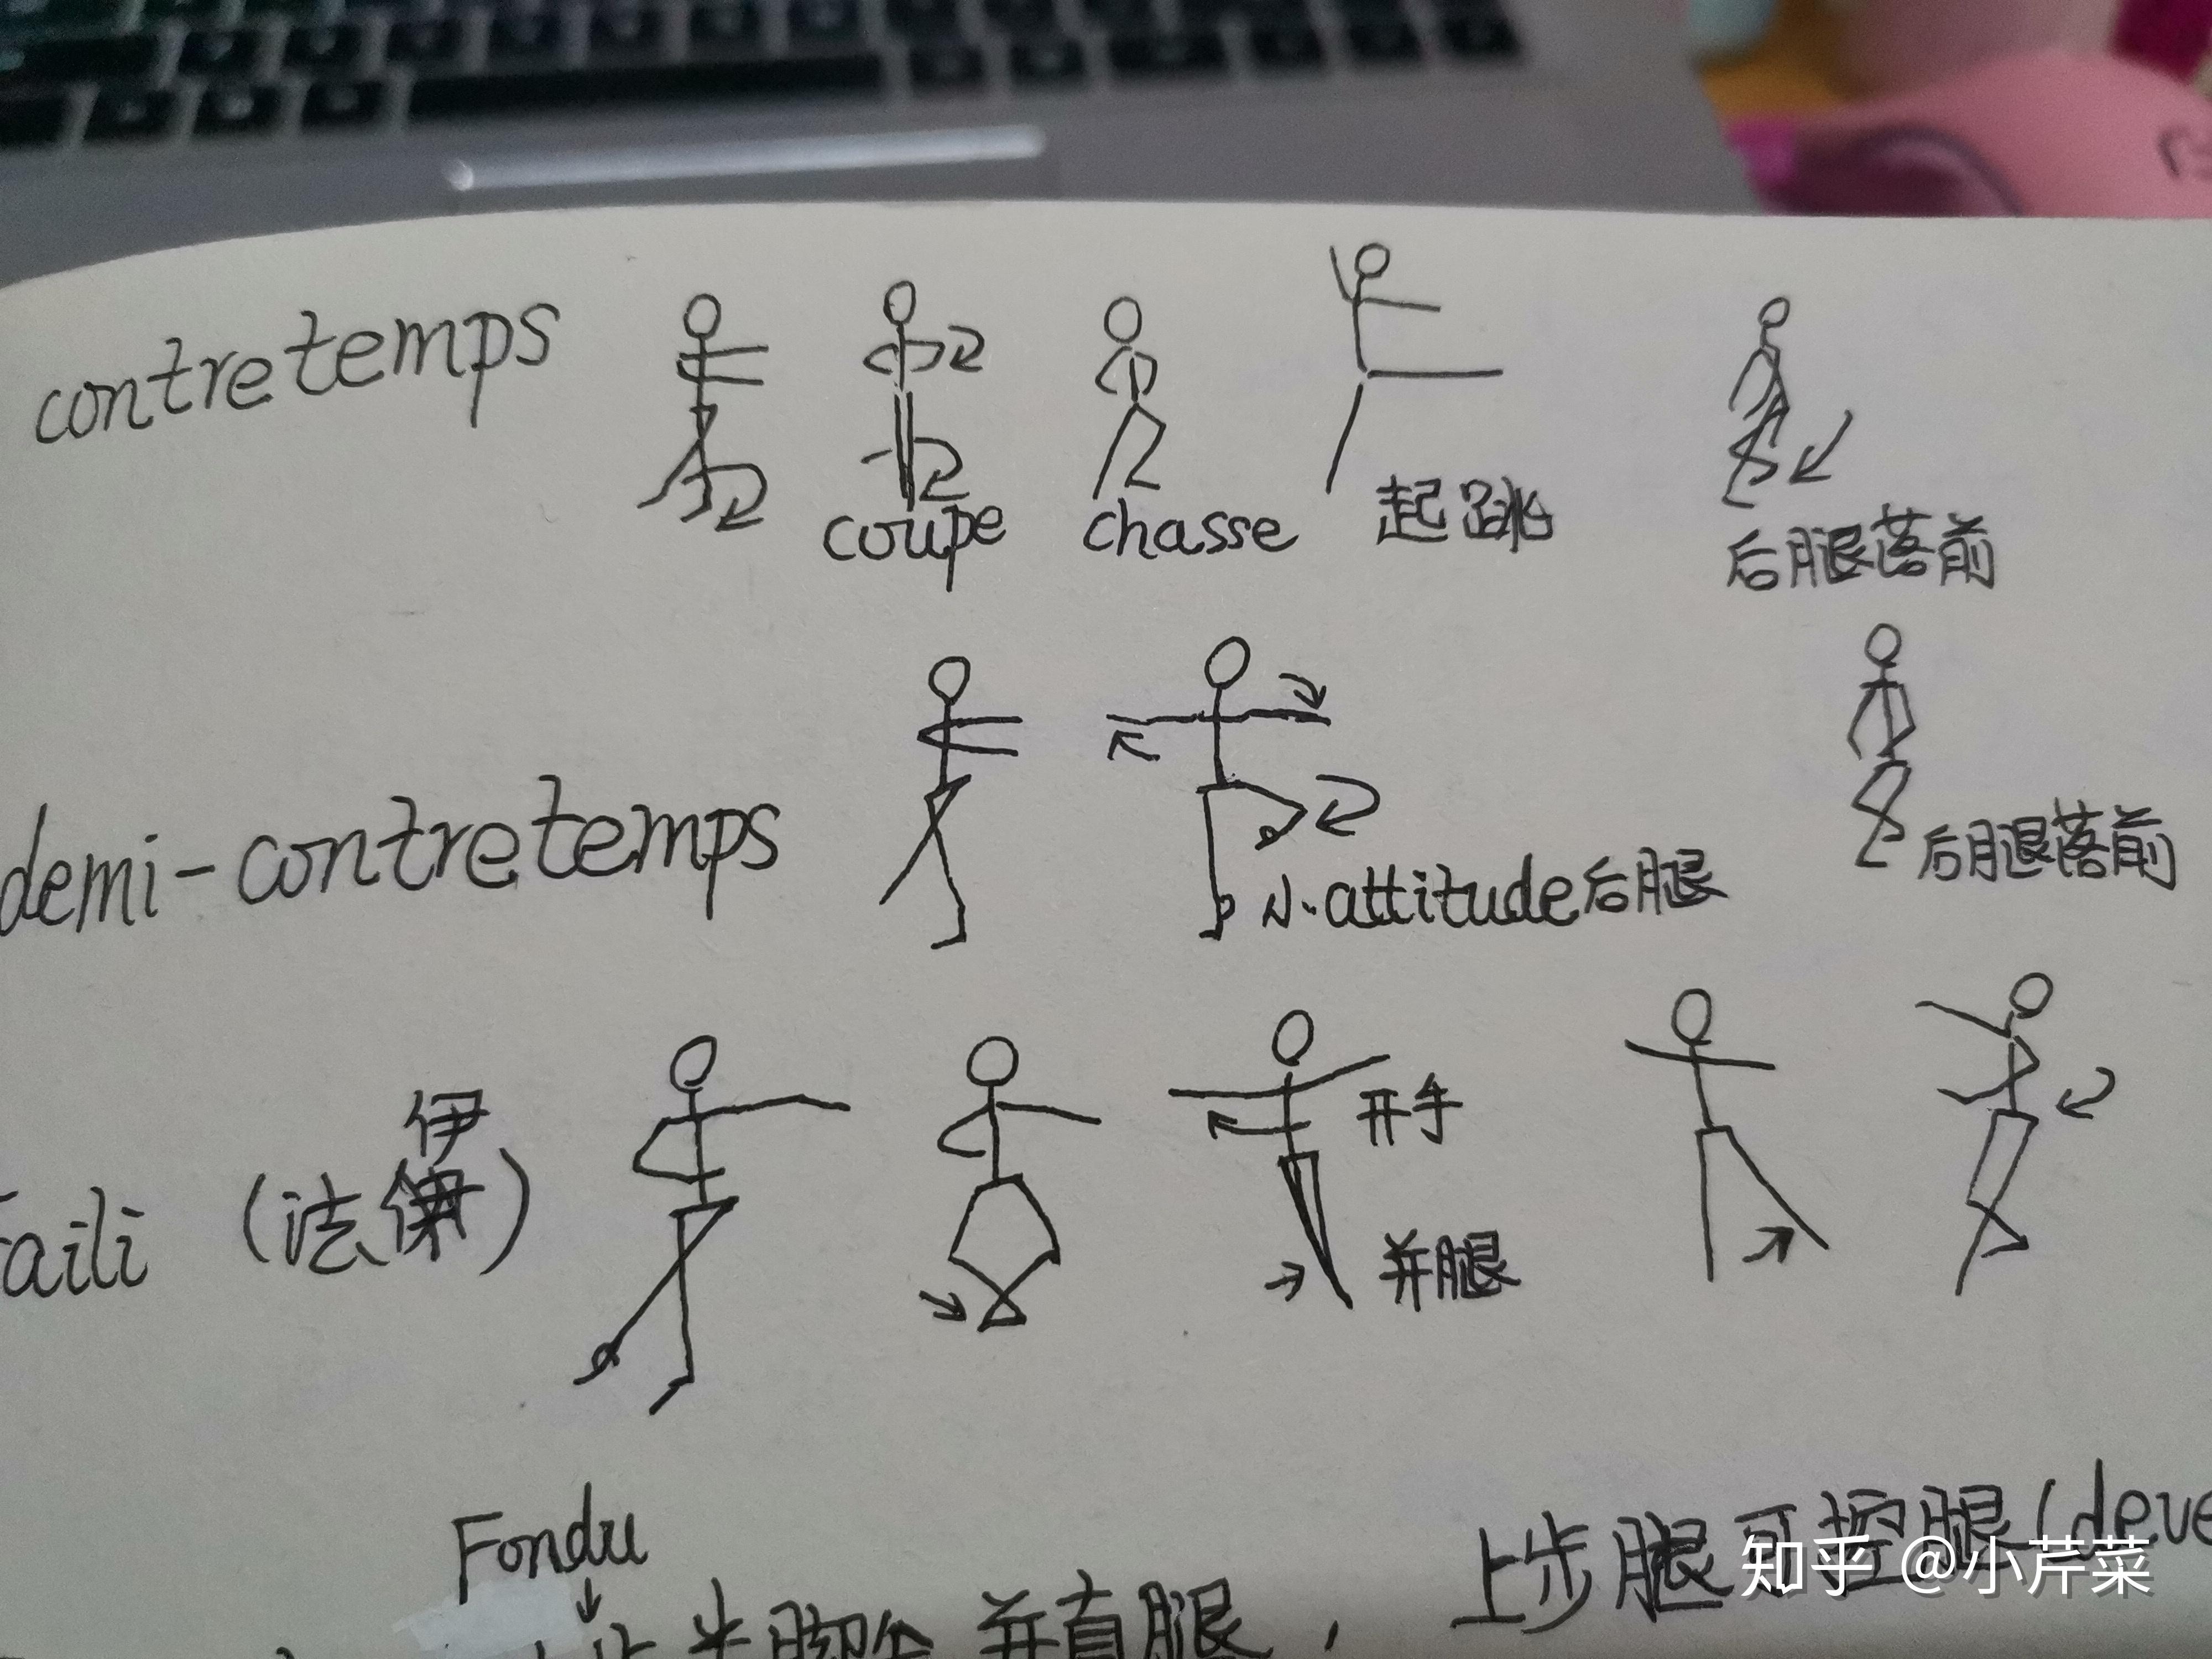 contretemps
coupe chasse 起跳 后腿落前
demi-contretemps
小attitude后腿 后腿落前
faili (法伊)
开手
并腿
Fondu
上步腿可控腿(deve
并直腿，
知乎 @小芹菜